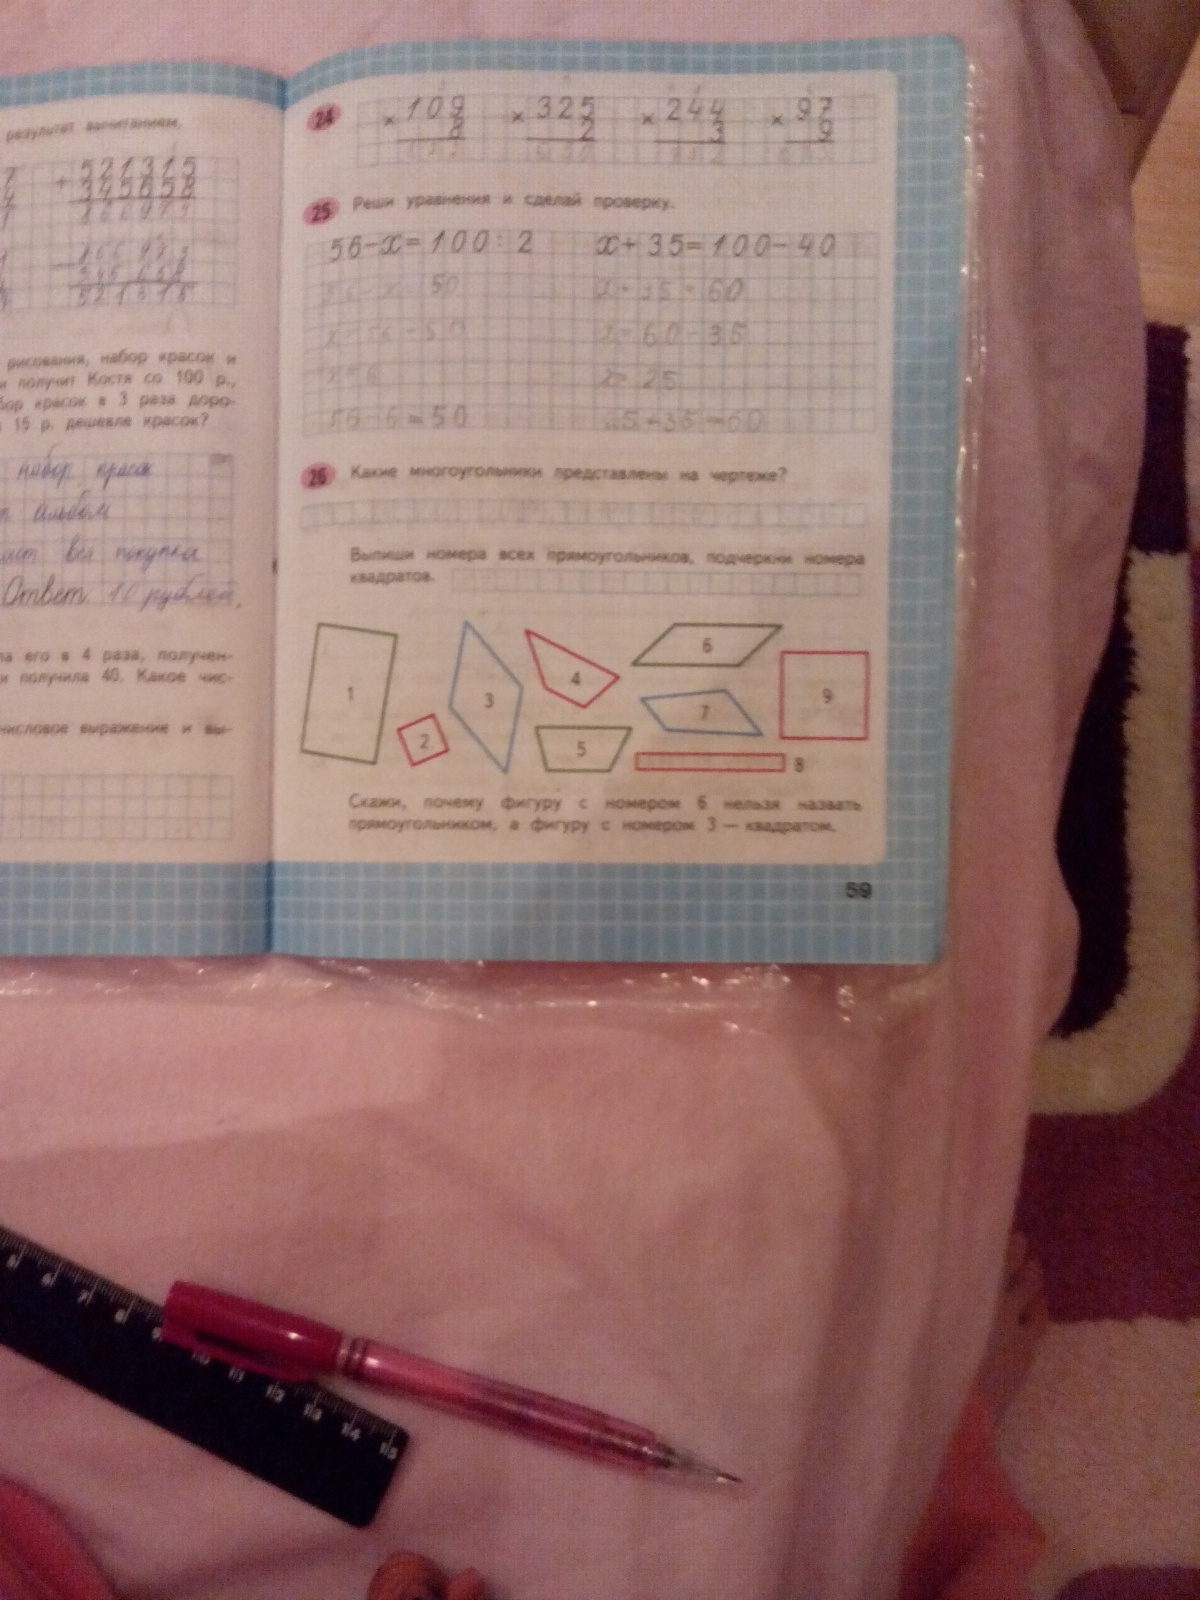 результат вычитанием.
+ 521315
345658
рисования, набор красок и
и получит Костя со 100 р.,
бор красок в 3 раза доро-
15 р. дешевле красок?
набор красок
альбом
вся покупка
Ответ 10 рублей.
ла его в 4 раза, получен-
и получила 40. Какое чис-
числовое выражение и вы-
24
× 109 × 325 × 244 × 97
8 2 3 9
25 Реши уравнения и сделай проверку.
56-x=100:2 x+35=100-40
56-x=50 x+35=60
x=56-50 x=60-35
x=6 x=25
56-6=50 25+35=60
26 Какие многоугольники представлены на чертеже?
Выпиши номера всех прямоугольников, подчеркни номера
квадратов.
1 2 3 4 5 6 7 8 9
Скажи, почему фигуру с номером 6 нельзя назвать
прямоугольником, а фигуру с номером 3 — квадратом.
59
5 6 7 8 9 10 11 12 13 14 15